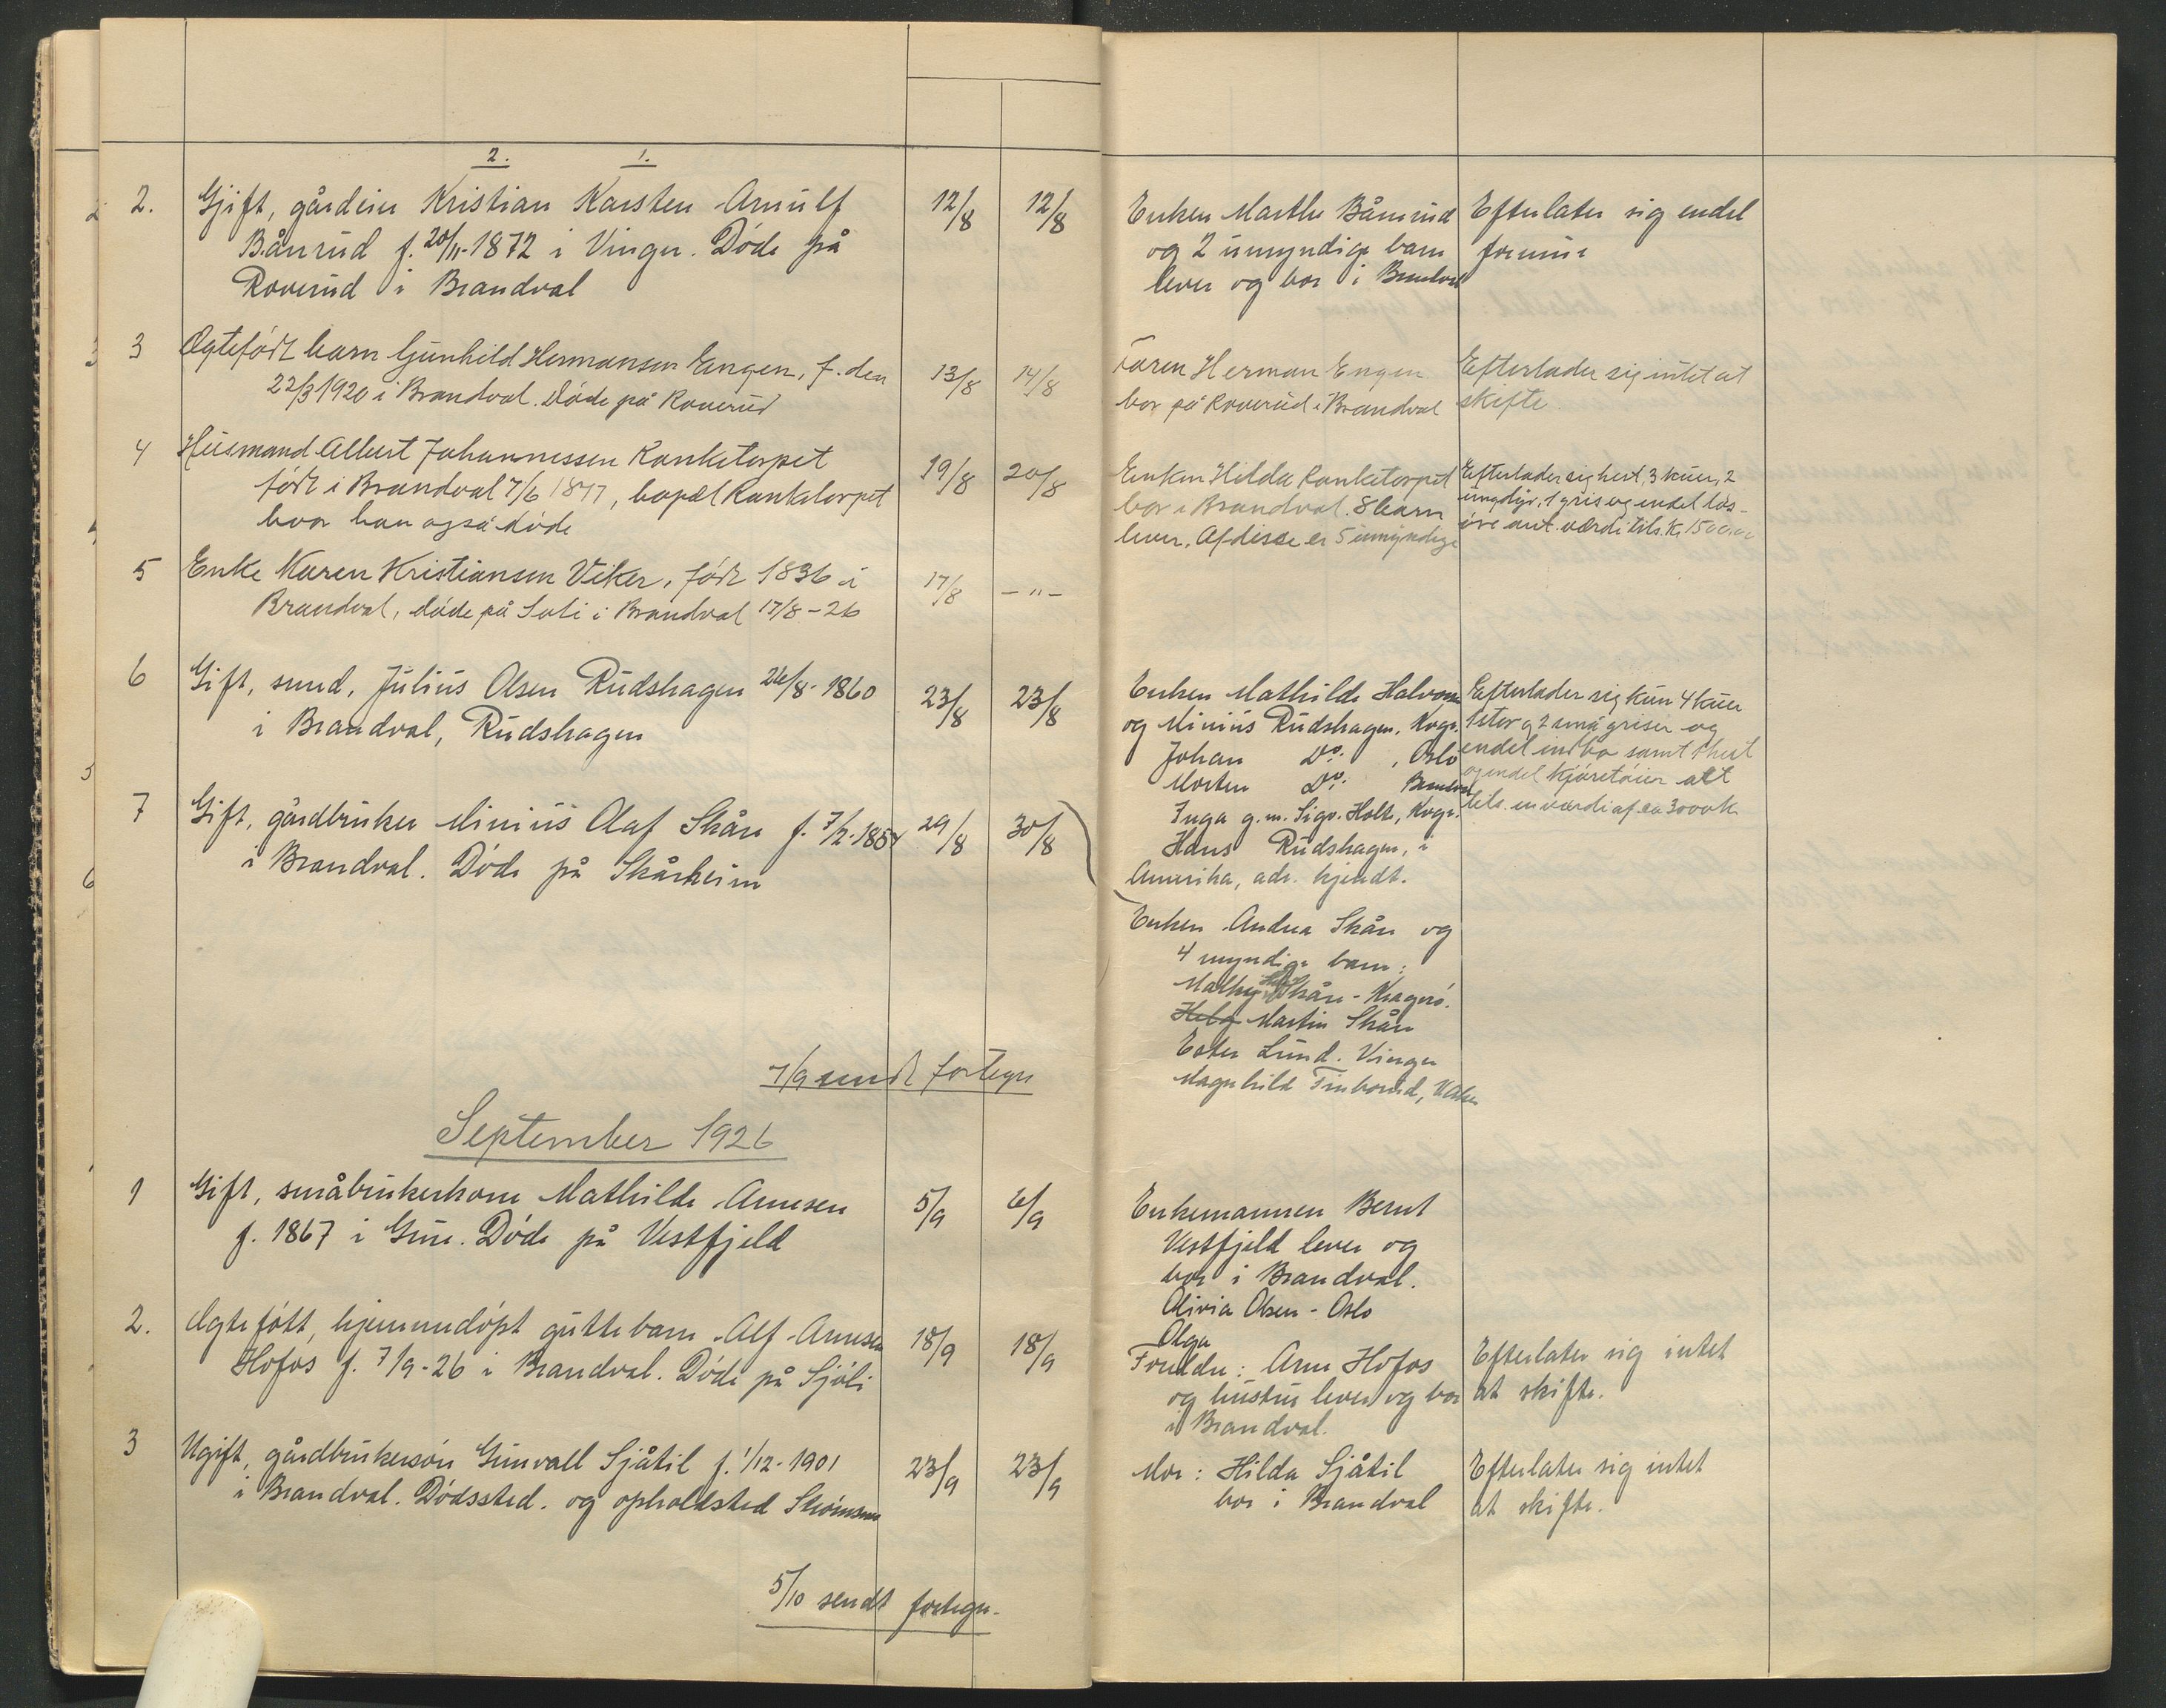 2. 1.
2. Gjift, gårdeier Kristian Karsten Arnulf 12/8 12/8
Bånrud f. 20/11-1872 i Vinger. Døde på
Roverud i Brandval
Enken Marthe Bånrud
og 2 umyndige barn
lever og bor i Brandval
Efterlater sig endel
formue
3 Ægtefødt barn Gunhild Hermansen Engen, f. den 13/8 14/8
22/3 1920 i Brandval. Døde på Roverud
Faren Herman Engen
bor på Roverud i Brandval
Efterlader sig intet at
skifte.
4 Husmand Albert Johannessen Ranketorpet 19/8 20/8
født i Brandval 7/6 1877, bopæl Ranketorpet
hvor han også døde
Enken Hilda Ranketorpet
bor i Brandval. 8 barn
lever. Af disse er 5 umyndige
Efterlader sig hest, 3 kuer, 2
ungdyr, 1 gris og endel løs-
øre ant. værdi tils. K. 1500.
5 Enke Karen Kristiansen Viker, født 1836 i 17/8 -"-
Brandval, døde på Soli i Brandval 17/8-26
6 Gift, smed, Julius Olsen Rudshagen 26/8-1860 23/8 23/8
i Brandval, Rudshagen
Enken Mathilde
og Minius Rudshagen, Kvgr.
Johan Do. , Oslo
Morten Do. Brandval
Inga g.m. Sigv. Holt, Kvgr.
Hans Rudshagen, i
Amerika, adr. kjendt.
Efterlader sig kun 4 kuer
og 2 små griser og
endel indbo samt 1 hest
og endel kjøretøier alt
tils. en værdi af ca 3000 k
7 Gift, gårdbruker Minius Olaf Skåre f. 7/2-1854 29/8 30/8
i Brandval. Døde på Skårheim
Enken Andrea Skåre og
4 myndige barn:
Skåre - Kragerø.
Helg Martin Skåre
Ester Lund. Vinger
Magnhild
7/9 sendt fortegn
September 1926
1 Gift, småbrukerkone Mathilde Arnesen 5/9 6/9
f. 1867 i Grue. Døde på Vestfjeld
Enkemannen Bernt
Vestfjeld lever og
bor i Brandval.
Olivia Olsen - Oslo
Olga
2. Ægtefött, hjemmedöpt guttebarn Alf Arnesen 18/9 18/9
Hofos f. 7/9-26 i Brandval. Døde på Sjöli
Foreldre: Arne Hofos
og hustru lever og bor
i Brandval.
Efterlater sig intet
at skifte.
3 Ugift, gårdbrukersøn Gunvall Sjåtil f. 1/12-1901 23/9 23/9
i Brandval. Dødssted. og opholdsted
Mor: Hilda Sjåtil
bor i Brandval
Efterlater sig intet
at skifte.
5/10 sendt fortegn.